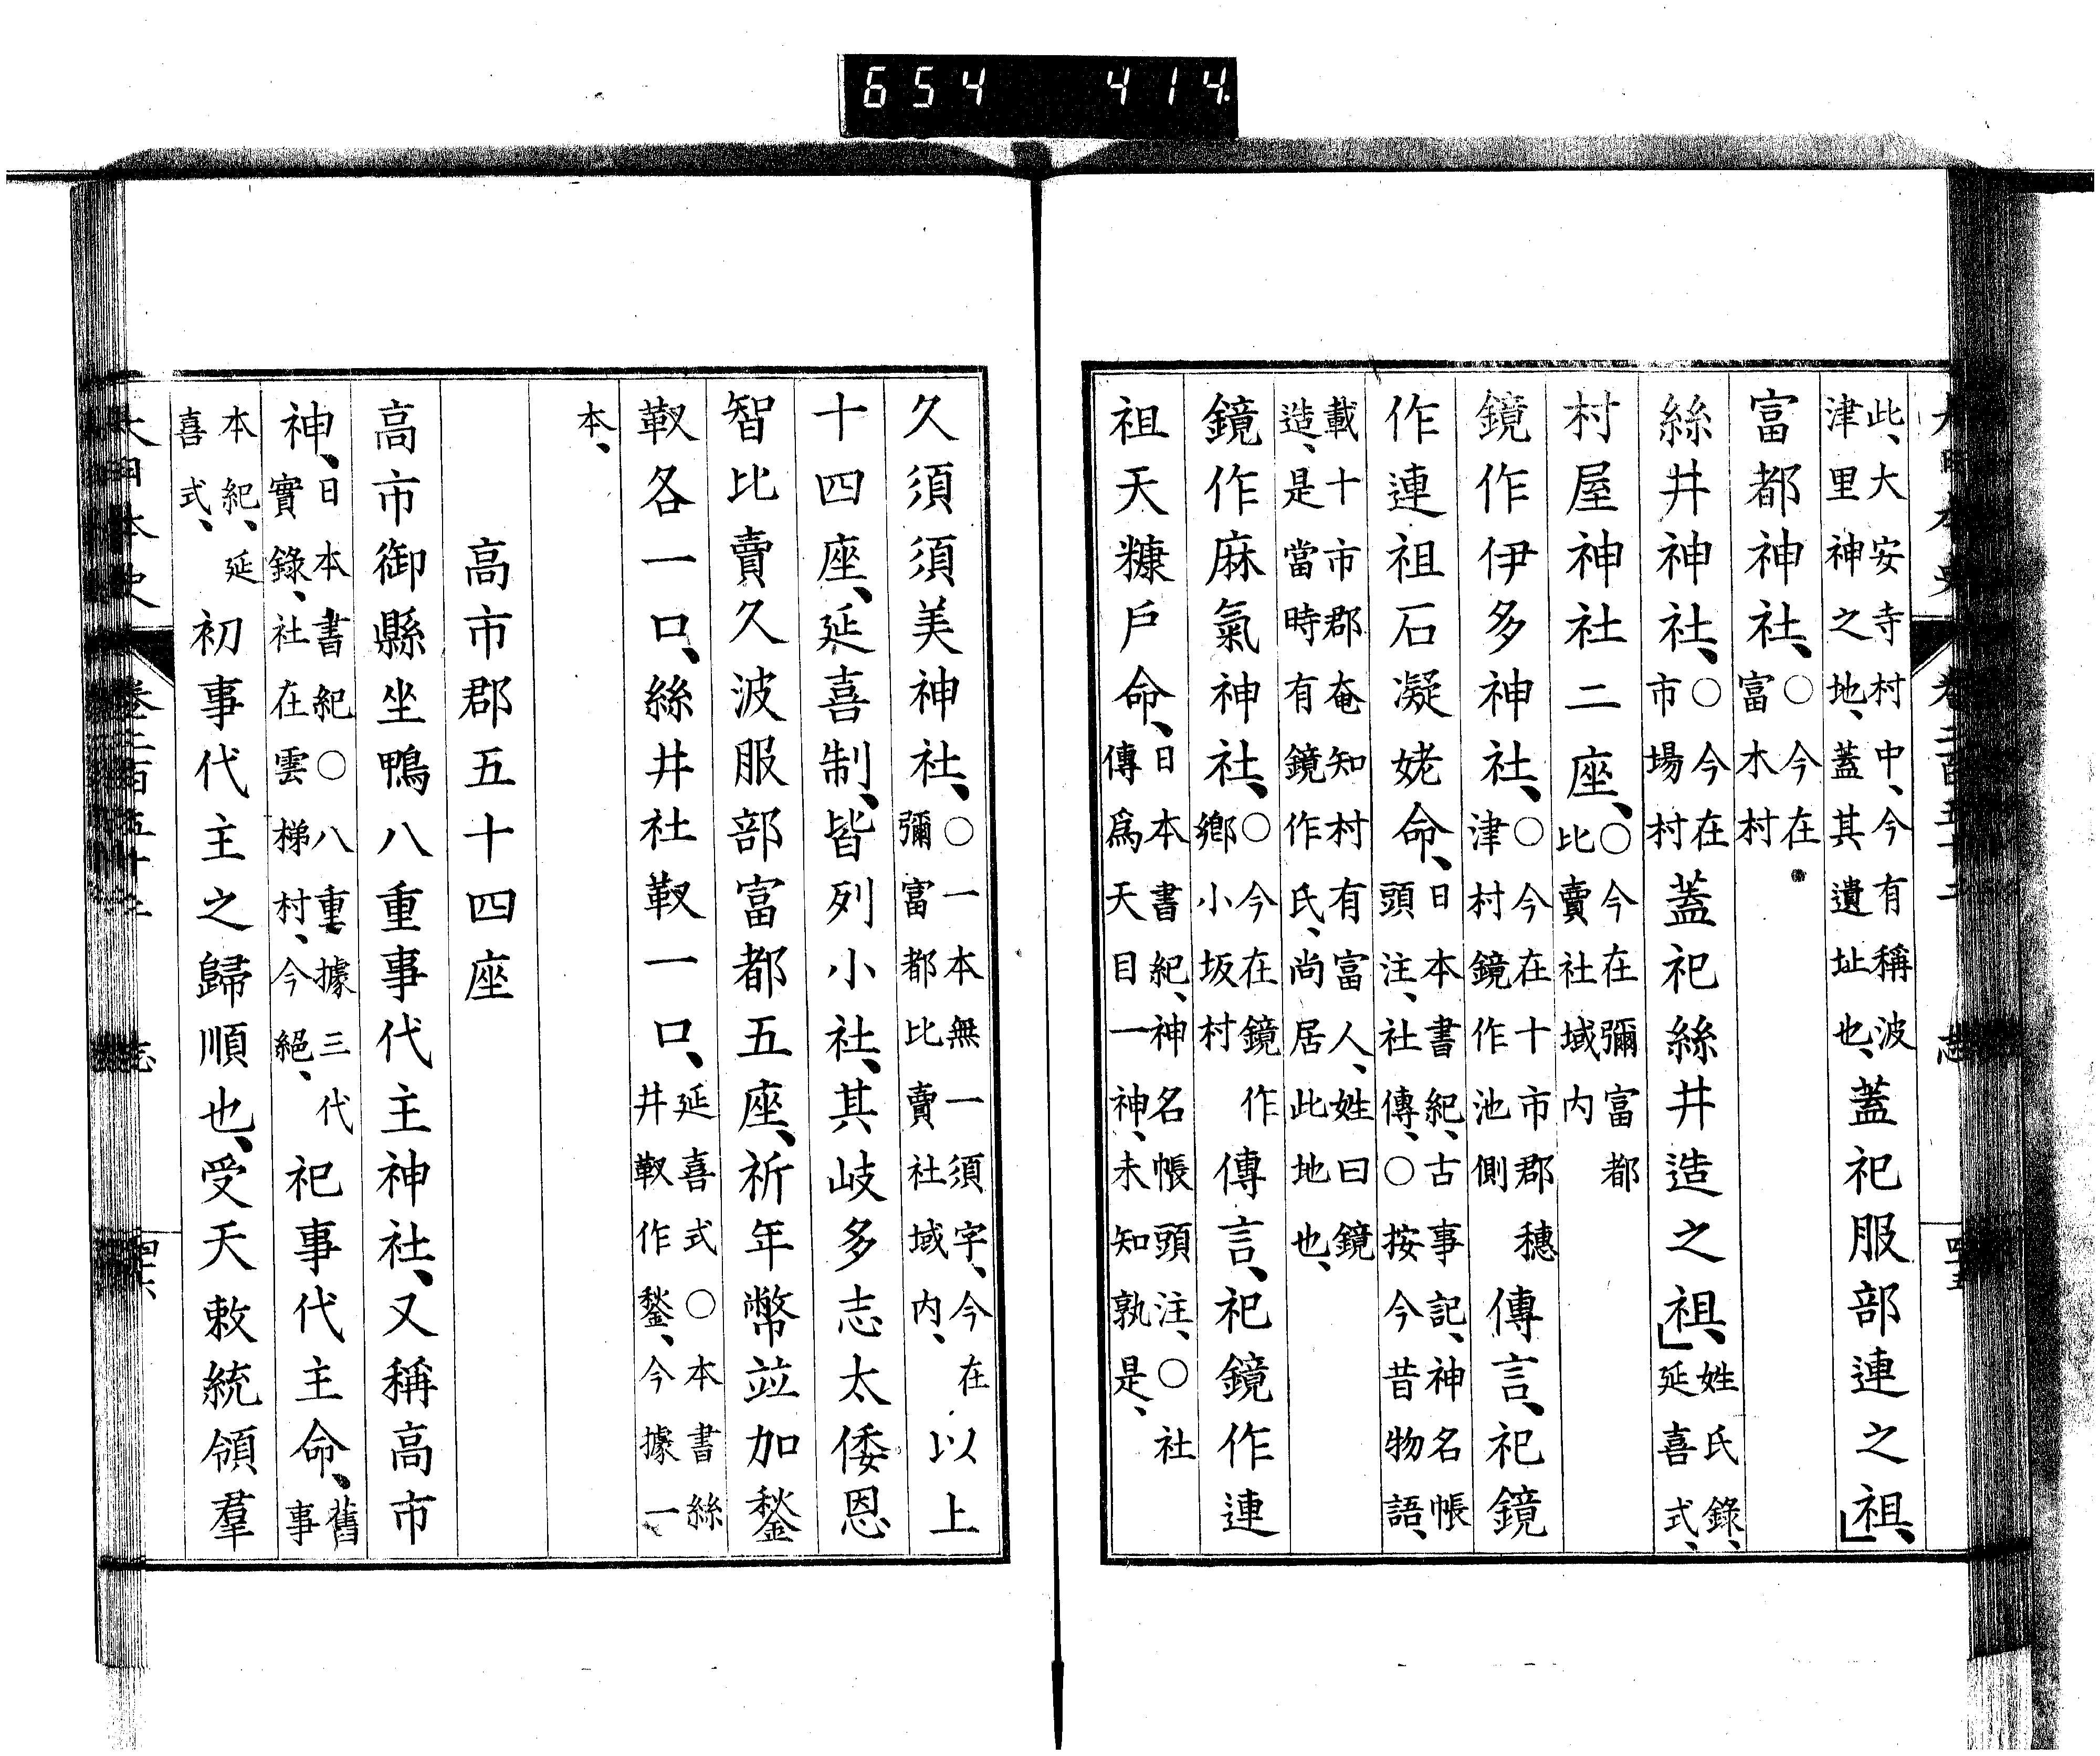 654 414
大日本史 卷二百五十二 志 四十五
此、大安寺村中、今有稱波津里神之地、蓋其遺址也、蓋祀服部連之祖、」
富都神社、○今在富木村
絲井神社、○今在市場村蓋祀絲井造之祖、」姓氏錄、延喜式、
村屋神社二座、○今在彌富都比賣社域内
鏡作伊多神社、○今在十市郡穗津村鏡作池側傳言、祀鏡
作連祖石凝姥命、日本書紀、古事記、神名帳頭注、社傳、○按今昔物語、
載十市郡奄知村有富人、姓曰鏡造、是當時有鏡作氏、尚居此地也、
鏡作麻氣神社、○今在鏡作鄉小坂村傳言、祀鏡作連
祖天糠戶命、日本書紀、神名帳頭注、○社傳爲天目一神、未知孰是、
久須須美神社、○一本無一須字、今在彌富都比賣社域内、以上
十四座、延喜制、皆列小社、其岐多志太倭恩
智比賣久波服部富都五座、祈年幣竝加鍫
靫各一口、絲井社靫一口、延喜式○本書絲井靫作鍫、今據一
本、
高市郡五十四座
高市御縣坐鴨八重事代主神社、又稱高市
神、日本書紀○八重據三代實錄、社在雲梯村、今絕、祀事代主命、舊事
本紀、延喜式、初事代主之歸順也、受天敕統領羣
大日本史 卷二百五十二 志 四十六